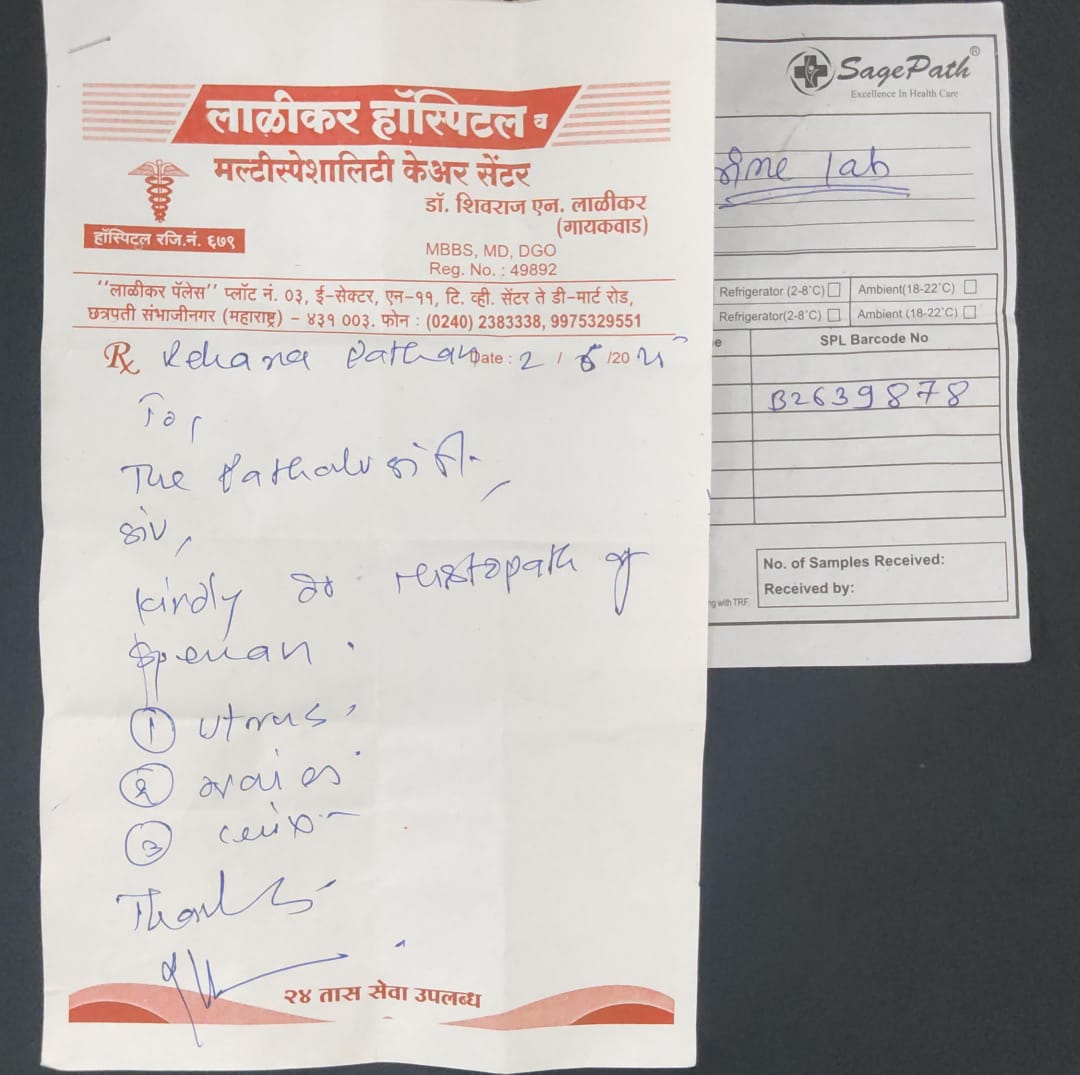 लाळीकर हॉस्पिटल व
मल्टीस्पेशालिटी केअर सेंटर
डॉ. शिवराज एन. लाळीकर
(गायकवाड)
हॉस्पिटल रजि.नं. ६७९
MBBS, MD, DGO
Reg. No. : 49892
"लाळीकर पॅलेस" प्लॉट नं. ०३, ई-सेक्टर, एन-११, टि. व्ही. सेंटर ते डी-मार्ट रोड,
छत्रपती संभाजीनगर (महाराष्ट्र) - ४३१ ००३. फोन : (0240) 2383338, 9975329551
Rx Rehana Pathan Date : 2 / 6 /20
To,
The
Sir,
Kindly do histopath of
① utrus
② ovaries
③ cervix
Thanks
२४ तास सेवा उपलब्ध
SagePath®
Excellence In Health Care
lab
Refrigerator (2-8°C) Ambient(18-22°C)
Refrigerator(2-8°C) Ambient (18-22°C)
e SPL Barcode No
B2639878
No. of Samples Received:
Received by:
ng with TRF.